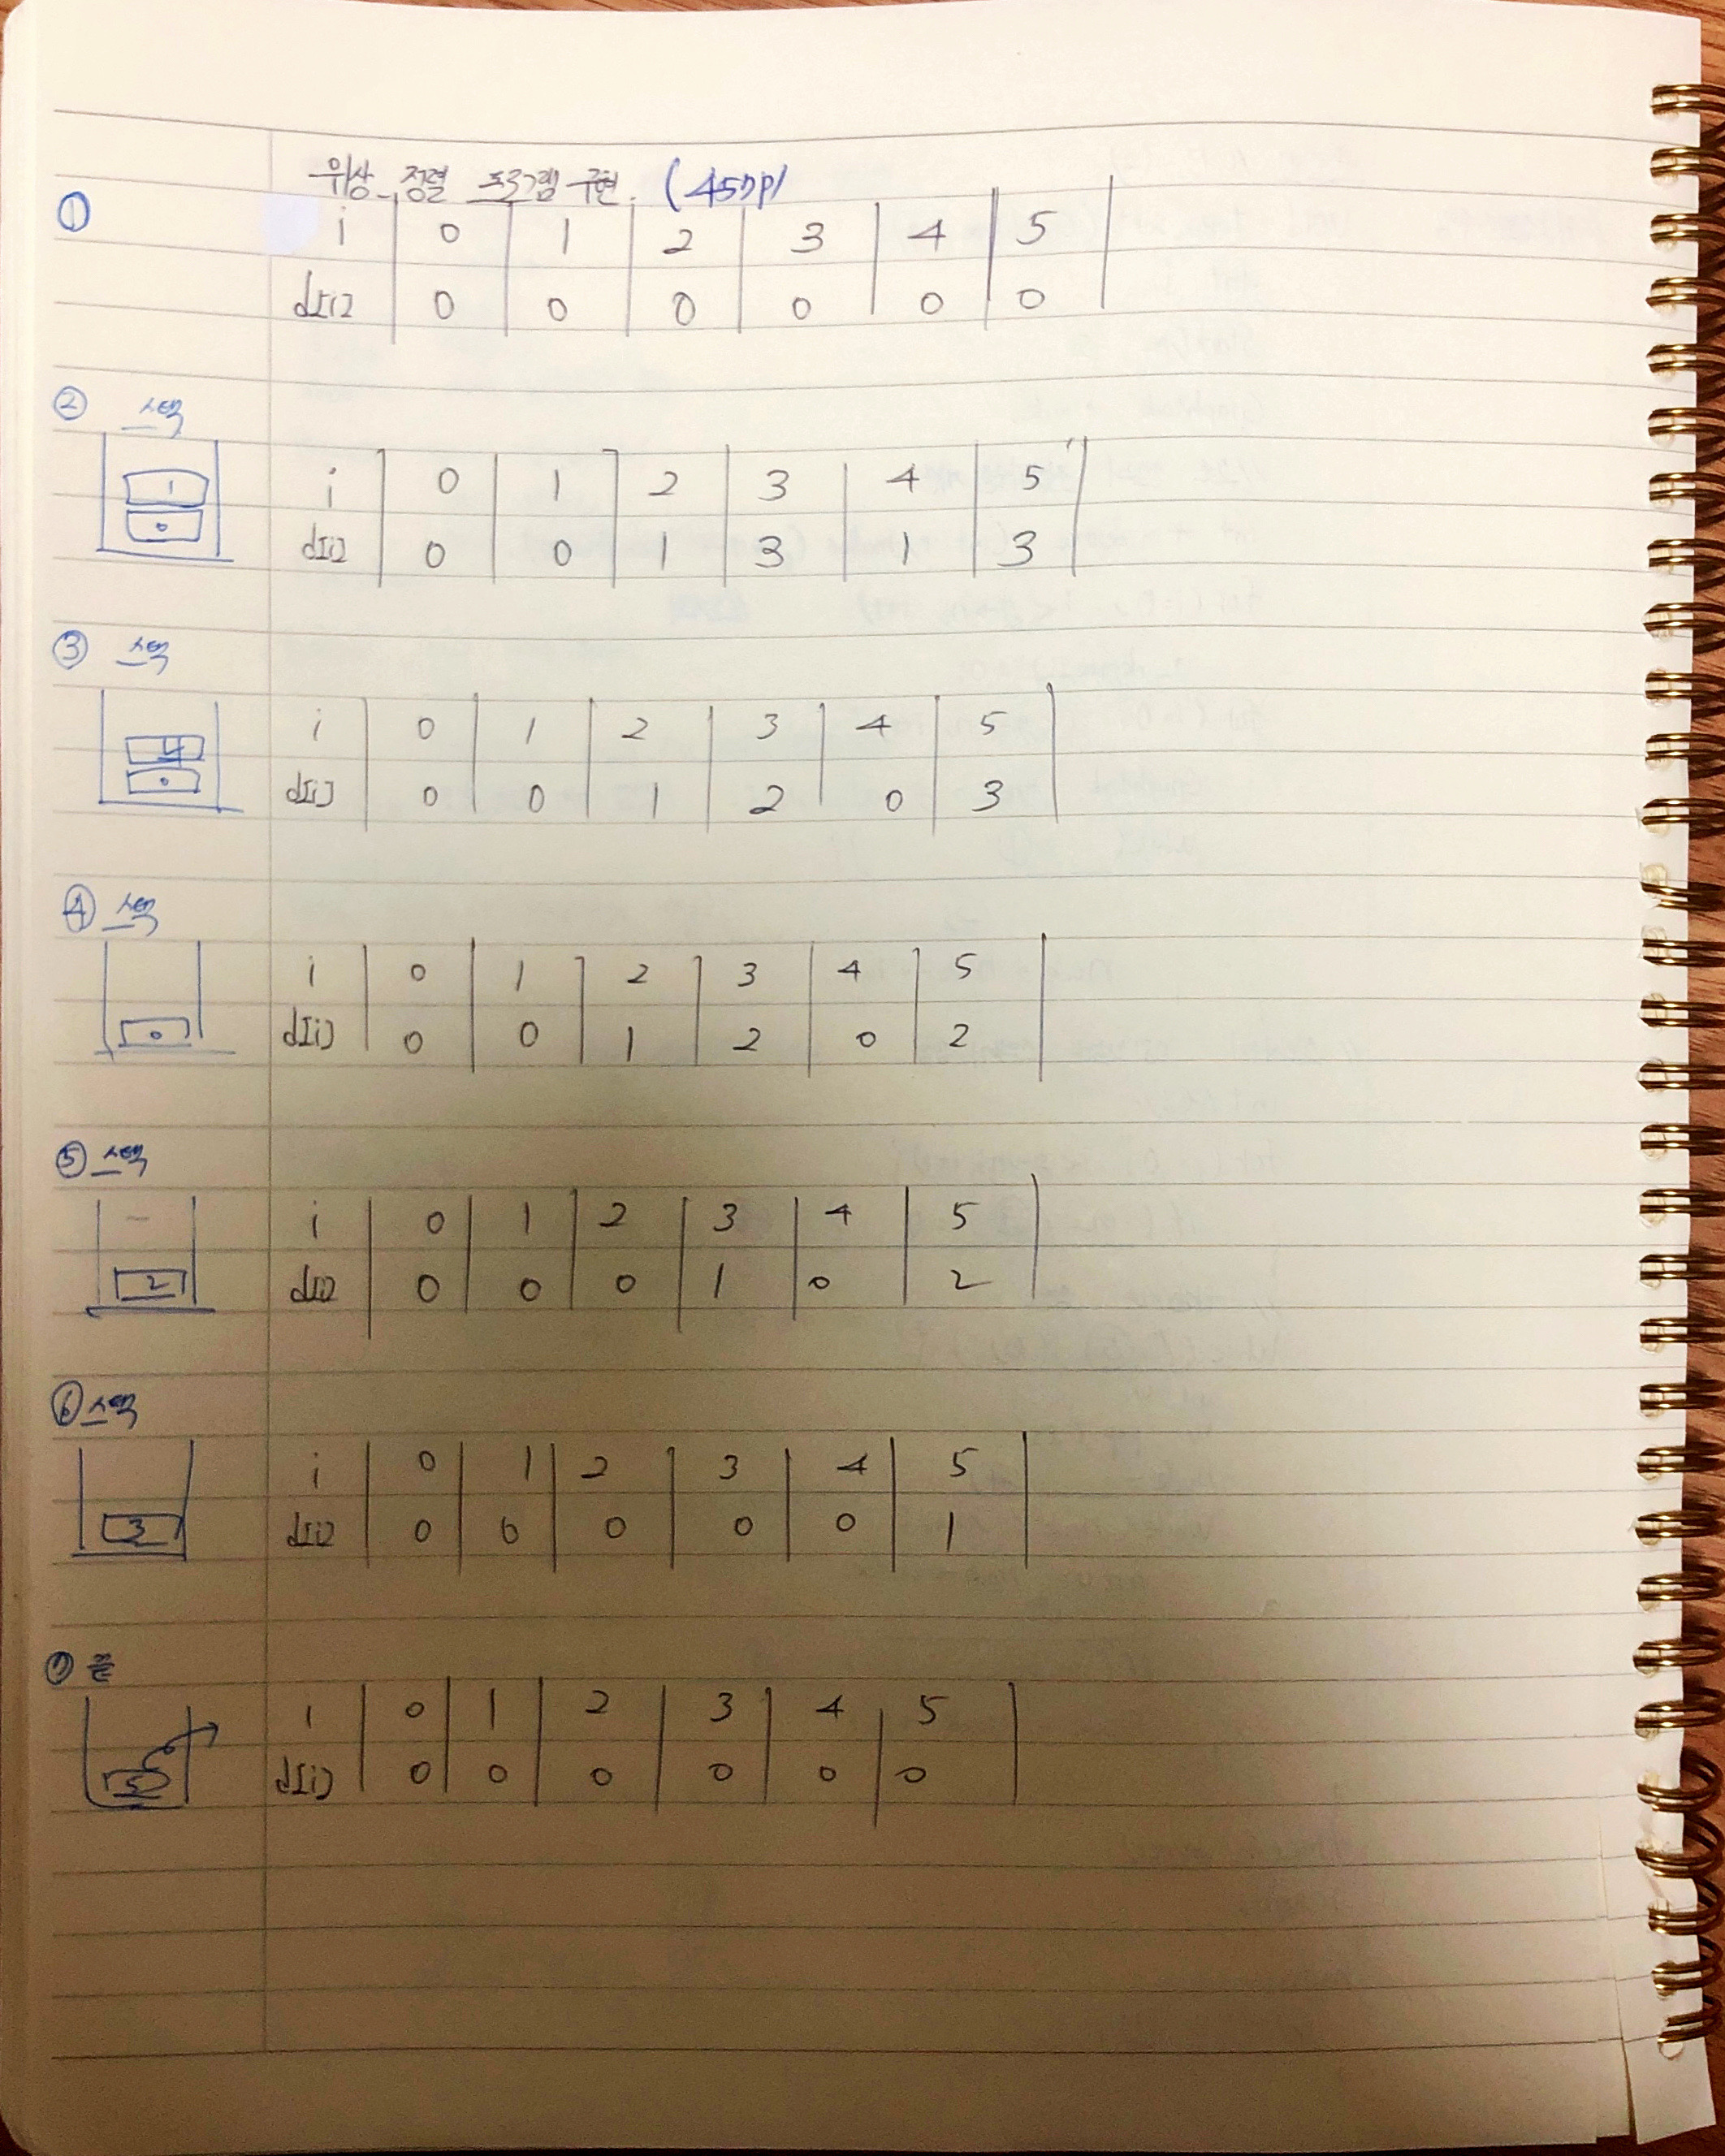 위상 정렬 프로그램 구현. (457p)
①
i 0 1 2 3 4 5
d[i] 0 0 0 0 0 0
② 스택
1
0
i 0 1 2 3 4 5
d[i] 0 0 1 3 1 3
③ 스택
4
0
i 0 1 2 3 4 5
d[i] 0 0 1 2 0 3
④ 스택
0
i 0 1 2 3 4 5
d[i] 0 0 1 2 0 2
⑤ 스택
2
i 0 1 2 3 4 5
d[i] 0 0 0 1 0 2
⑥ 스택
3
i 0 1 2 3 4 5
d[i] 0 0 0 0 0 1
⑦ 끝
5
i 0 1 2 3 4 5
d[i] 0 0 0 0 0 0